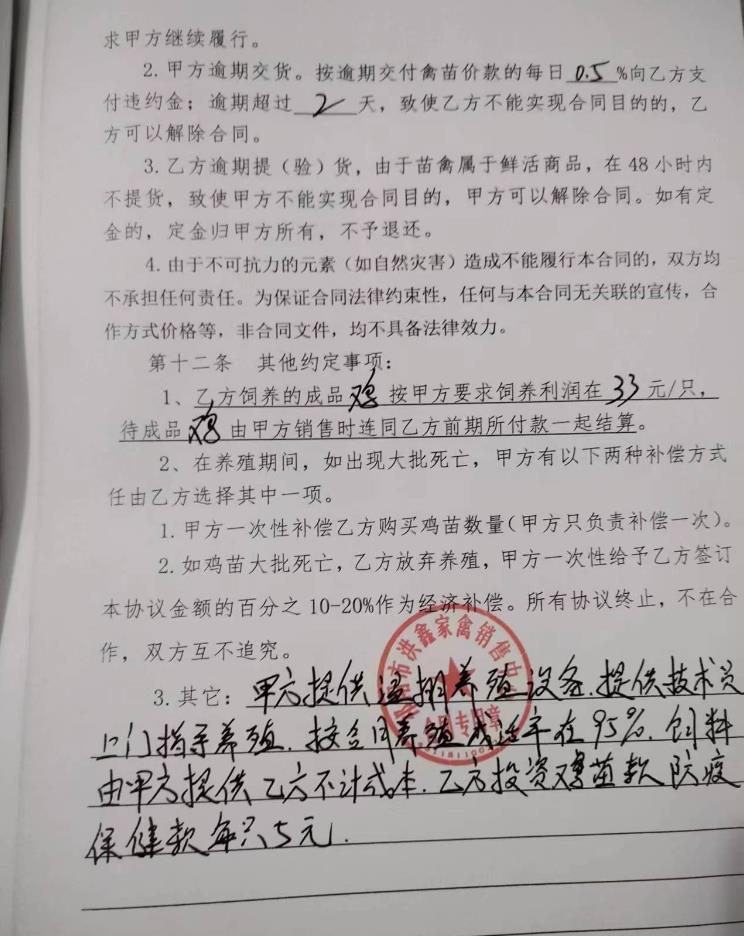 求甲方继续履行。
2.甲方逾期交货。按逾期交付禽苗价款的每日0.5%向乙方支
付违约金；逾期超过2天，致使乙方不能实现合同目的的，乙
方可以解除合同。
3.乙方逾期提（验）货，由于苗禽属于鲜活商品，在48小时内
不提货，致使甲方不能实现合同目的，甲方可以解除合同。如有定
金的，定金归甲方所有，不予退还。
4.由于不可抗力的元素（如自然灾害）造成不能履行本合同的，双方均
不承担任何责任。为保证合同法律约束性，任何与本合同无关联的宣传，合
作方式价格等，非合同文件，均不具备法律效力。
第十二条 其他约定事项：
1、乙方饲养的成品鸡按甲方要求饲养利润在33元/只，
待成品鸡由甲方销售时连同乙方前期所付款一起结算。
2、在养殖期间，如出现大批死亡，甲方有以下两种补偿方式
任由乙方选择其中一项。
1.甲方一次性补偿乙方购买鸡苗数量（甲方只负责补偿一次）。
2.如鸡苗大批死亡，乙方放弃养殖，甲方一次性给予乙方签订
本协议金额的百分之10-20%作为经济补偿。所有协议终止，不在合
作，双方互不追究。
市洪鑫家禽销售中
专用章
3.其它：甲方提供温棚养殖设备.提供技术员
上门指导养殖.按合同养殖成活率在95%.饲料
由甲方提供乙方不计成本.乙方投资鸡苗款防疫
保健款每只5元.